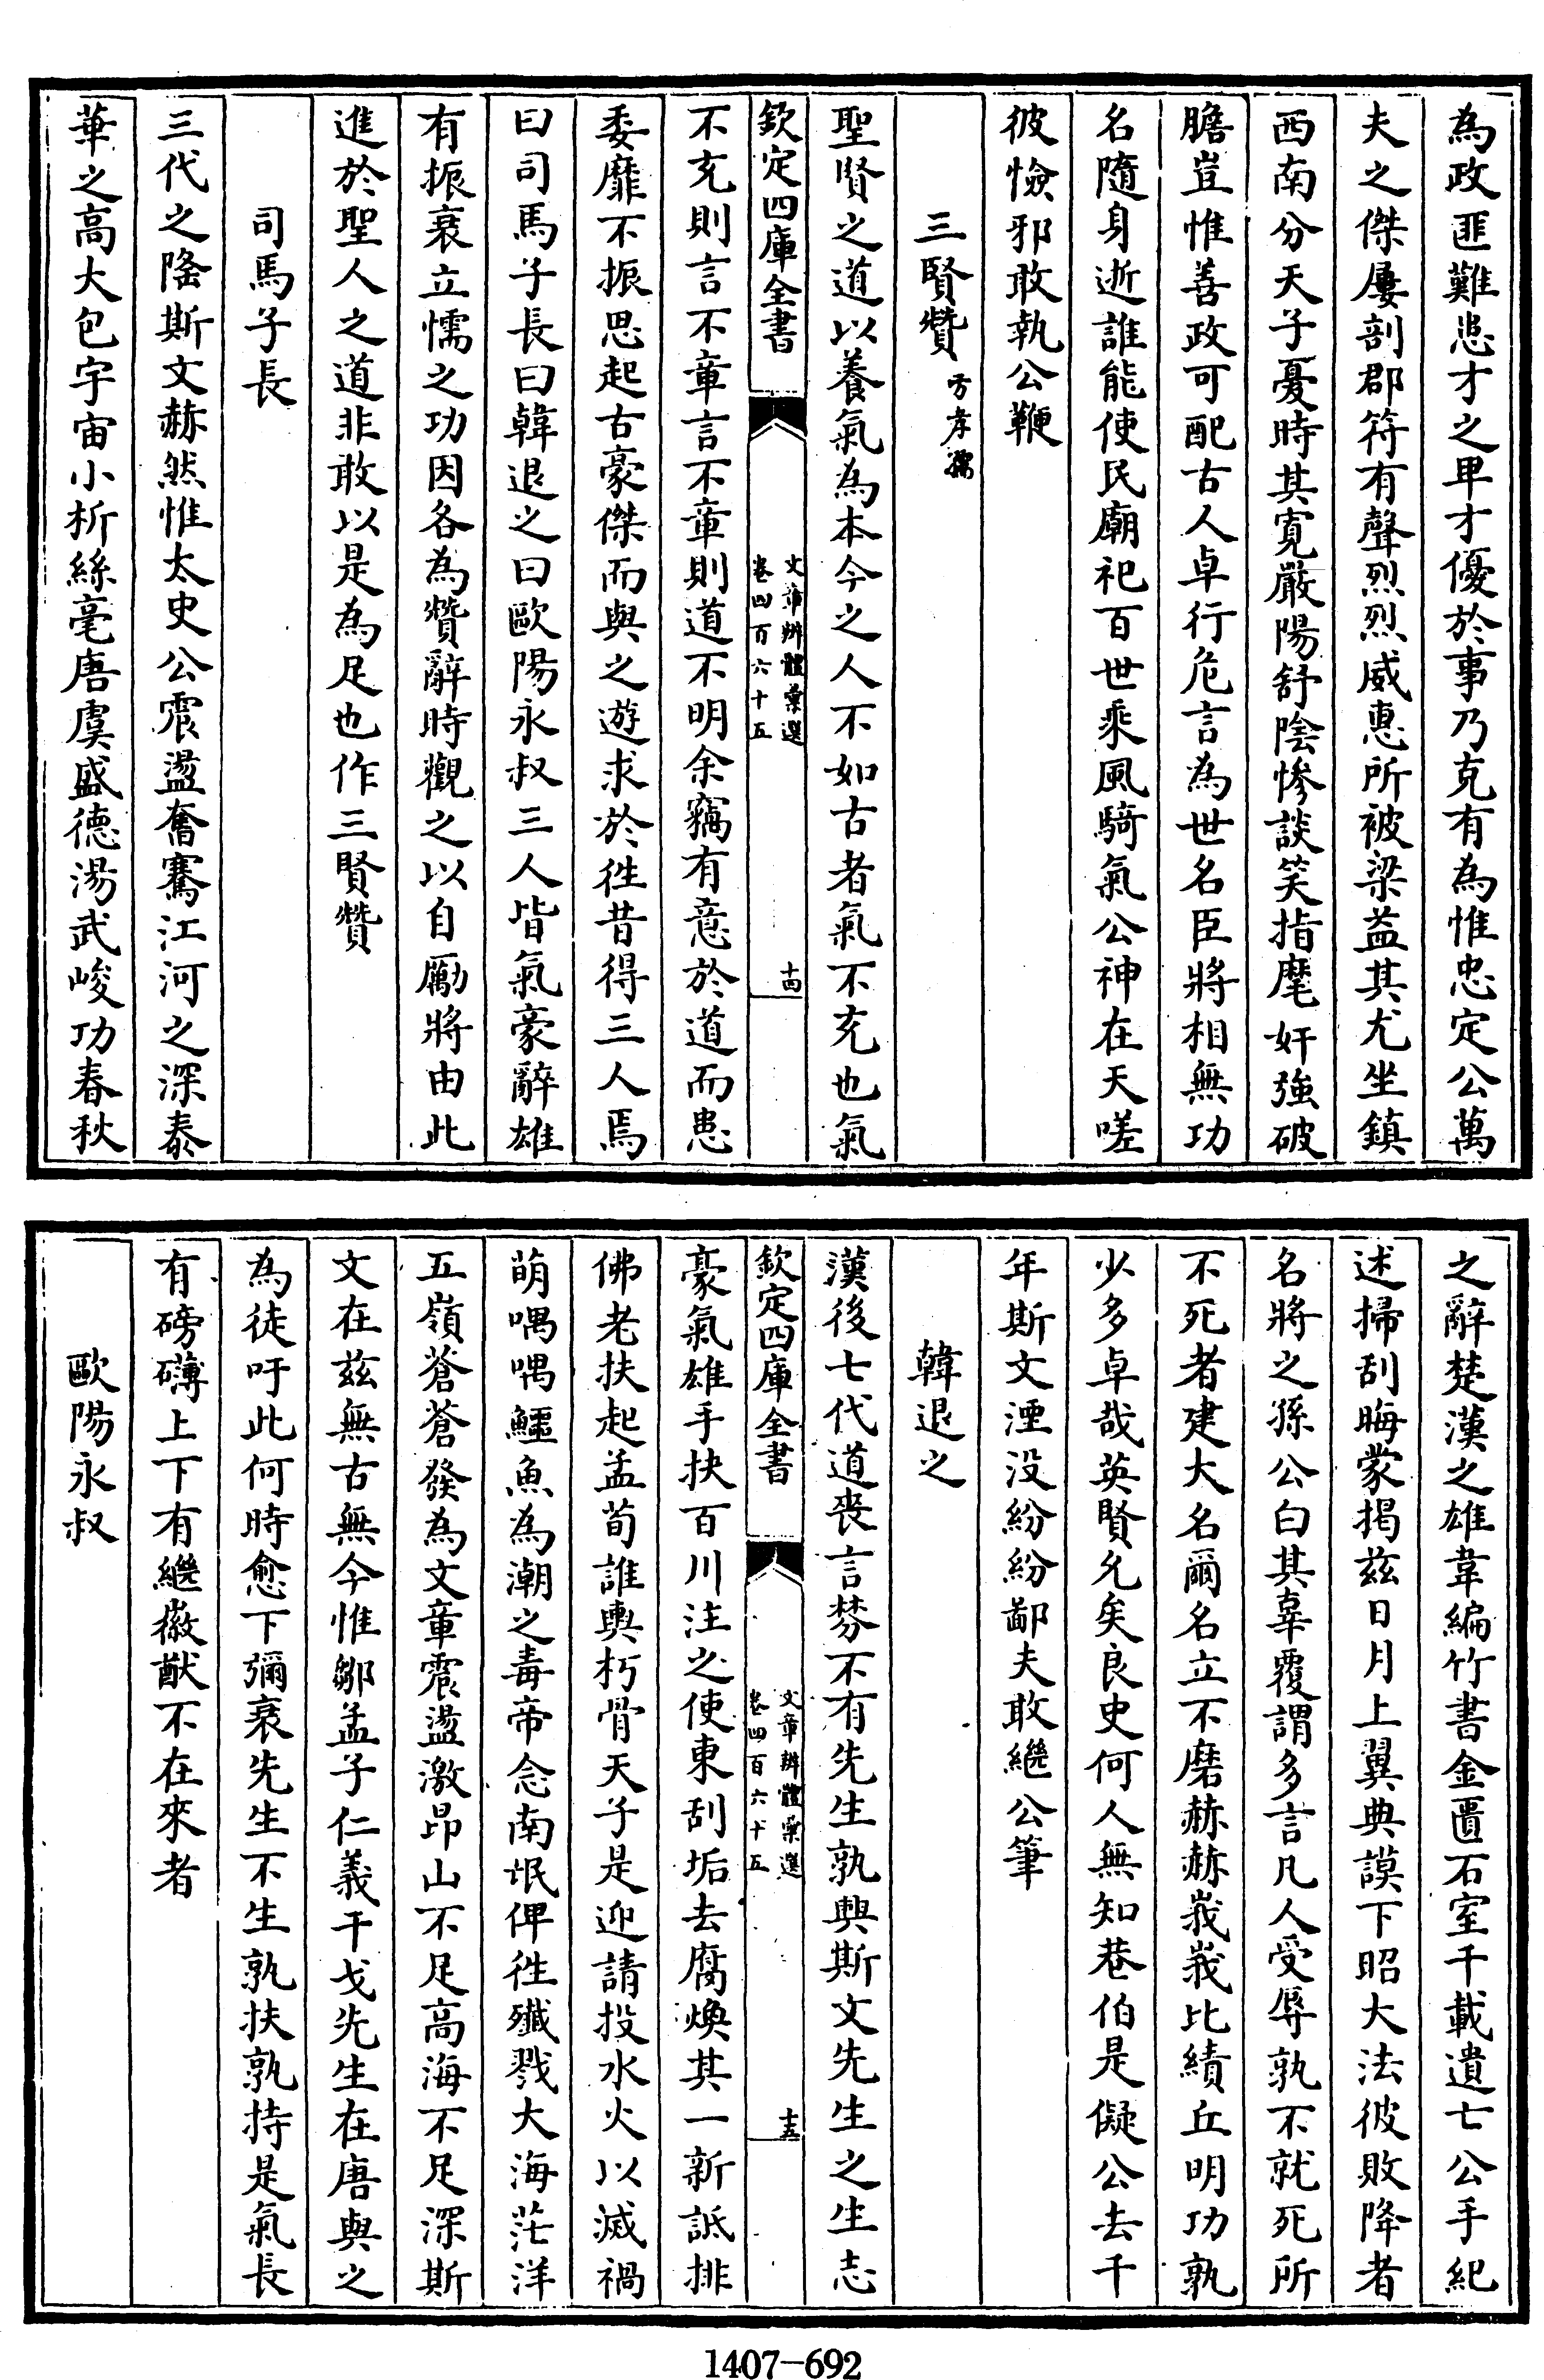 為政匪難患才之卑才優於事乃克有為惟忠定公萬
夫之傑屢剖郡符有聲烈烈威惠所被梁益其尤坐鎮
西南分天子憂時其寛嚴陽舒陰慘談笑指麾奸強破
膽豈惟善政可配古人卓行危言為世名臣將相無功
名隨身逝誰能使民廟祀百世乘風騎氣公神在天嗟
彼憸邪敢執公鞭
三賢贊 方孝孺
聖賢之道以養氣為本今之人不如古者氣不充也氣
欽定四庫全書
文章辨體彙選
卷四百六十五
十四
不充則言不章言不章則道不明余竊有意於道而患
委靡不振思起古豪傑而與之遊求於徃昔得三人焉
曰司馬子長曰韓退之曰歐陽永叔三人皆氣豪辭雄
有振衰立懦之功因各為贊辭時觀之以自勵將由此
進於聖人之道非敢以是為足也作三賢贊
司馬子長
三代之隆斯文赫然惟太史公震盪奮騫江河之深泰
華之高大包宇宙小析絲毫唐虞盛德湯武峻功春秋
之辭楚漢之雄韋編竹書金匱石室千載遺亡公手紀
述掃刮晦蒙揭兹日月上翼典謨下昭大法彼敗降者
名將之孫公白其辜覆謂多言凡人受辱孰不就死所
不死者建大名爾名立不磨赫赫峩峩比績丘明功孰
少多卓哉英賢允矣良史何人無知巷伯是儗公去千
年斯文湮没紛紛鄙夫敢繼公筆
韓退之
漢後七代道喪言棼不有先生孰興斯文先生之生志
欽定四庫全書
文章辨體彙選
卷四百六十五
十五
豪氣雄手抉百川注之使東刮垢去腐煥其一新詆排
佛老扶起孟荀誰輿朽骨天子是迎請投水火以滅禍
萌喁喁鱷魚為潮之毒帝念南氓俾徃殲戮大海茫洋
五嶺蒼蒼發為文章震盪激昂山不足高海不足深斯
文在兹無古無今惟鄒孟子仁義干戈先生在唐與之
為徒吁此何時愈下彌衰先生不生孰扶孰持是氣長
有磅礴上下有繼徽猷不在來者
歐陽永叔
1407-692